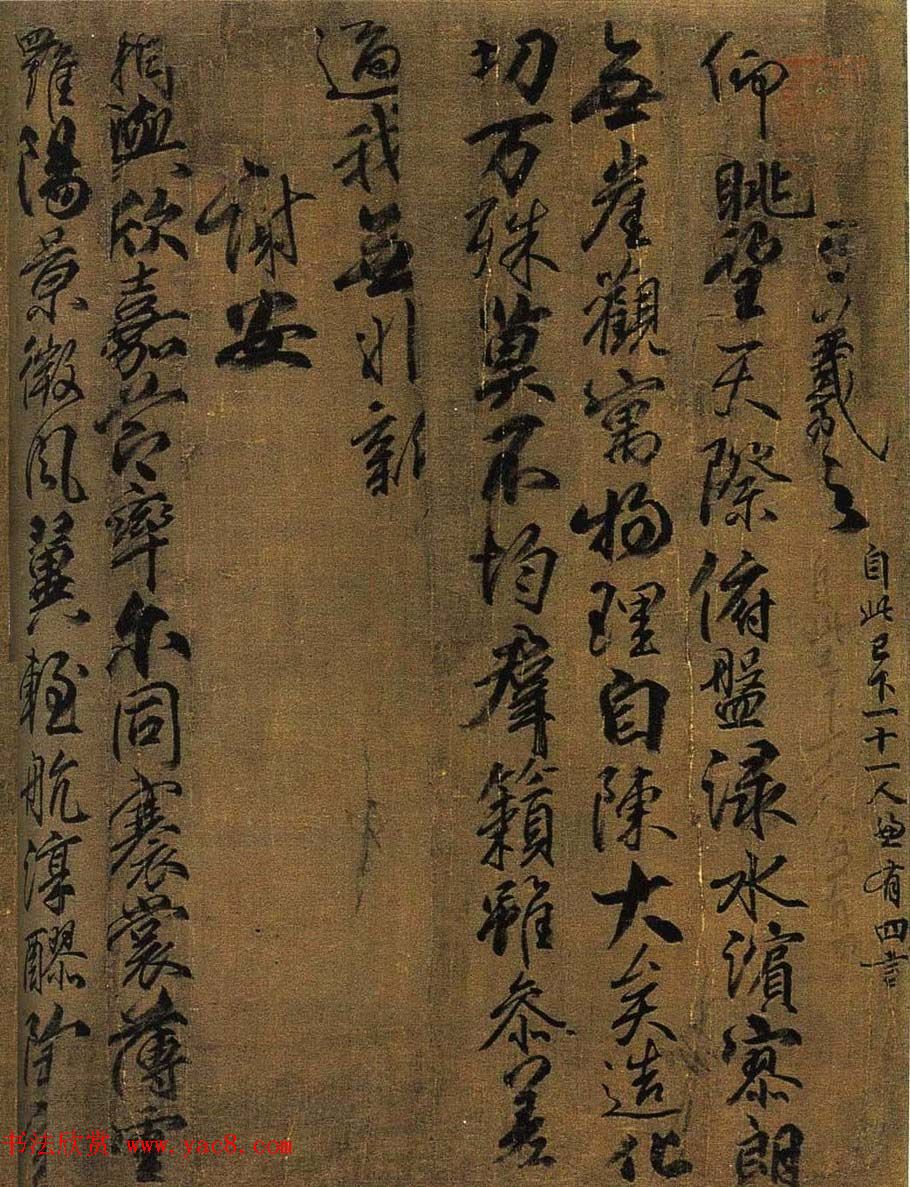 王羲之
自此已下一十一人有四言
仰眺望天際俯盤淥水濱寥朗
無崖觀寓物理自陳大矣造化
切万殊莫不均羣籟雖參差
適我無非新
謝安
相與欣嘉節率尒同褰裳薄雲
羅陽景微風翼輕航淳醪陶
书法欣赏 www.yac8.com